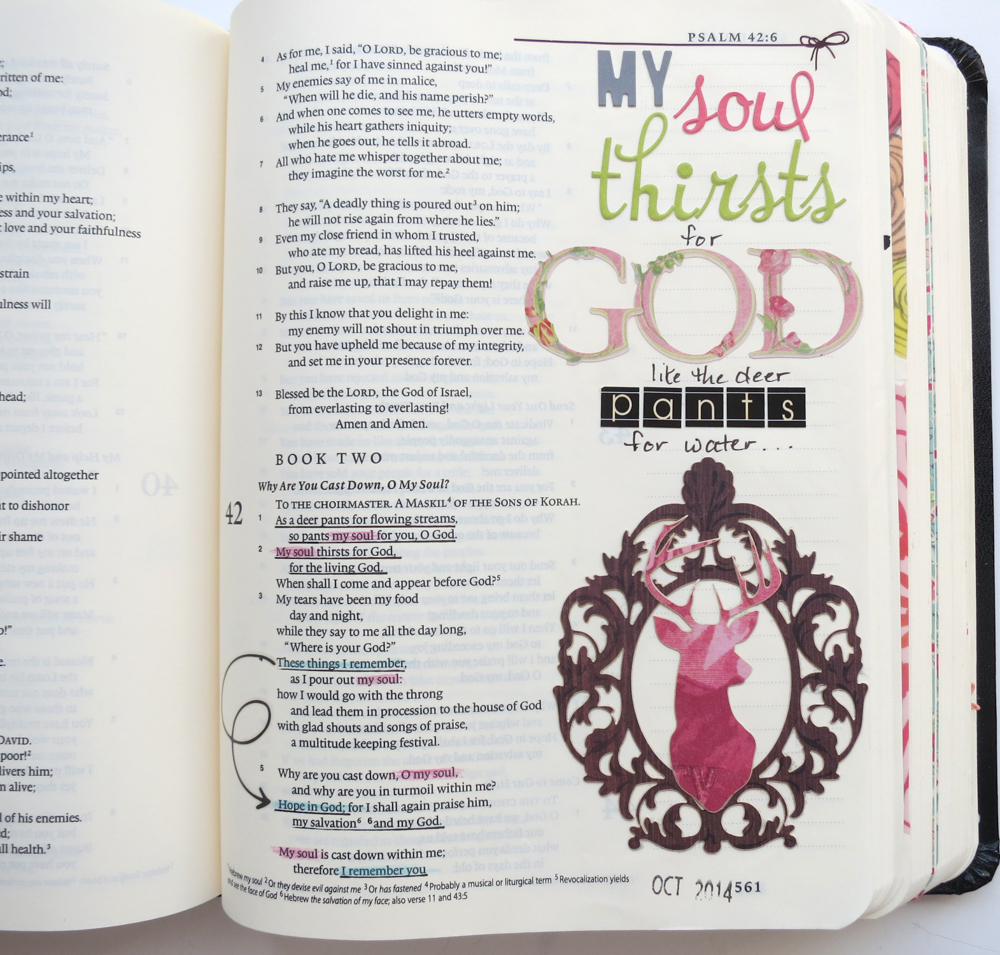 ;
ritten of me:
od;
erance²
ips,
e within my heart;
ess and your salvation;
t love and your faithfulness
strain
ulness will
head;
pointed altogether
nt to dishonor
ir shame
o!"
e.
DAVID.
poor!²
livers him;
n alive;
l of his enemies.
ed;
ull health.³
40
PSALM 42:6
4 As for me, I said, “O LORD, be gracious to me;
heal me,¹ for I have sinned against you!”
5 My enemies say of me in malice,
“When will he die, and his name perish?”
6 And when one comes to see me, he utters empty words,
while his heart gathers iniquity;
when he goes out, he tells it abroad.
7 All who hate me whisper together about me;
they imagine the worst for me.²
8 They say, “A deadly thing is poured out³ on him;
he will not rise again from where he lies.”
9 Even my close friend in whom I trusted,
who ate my bread, has lifted his heel against me.
10 But you, O LORD, be gracious to me,
and raise me up, that I may repay them!
11 By this I know that you delight in me:
my enemy will not shout in triumph over me.
12 But you have upheld me because of my integrity,
and set me in your presence forever.
13 Blessed be the LORD, the God of Israel,
from everlasting to everlasting!
Amen and Amen.
BOOK TWO
Why Are You Cast Down, O My Soul?
42 TO THE CHOIRMASTER. A MASKIL⁴ OF THE SONS OF KORAH.
1 As a deer pants for flowing streams,
so pants my soul for you, O God.
2 My soul thirsts for God,
for the living God.
When shall I come and appear before God?⁵
3 My tears have been my food
day and night,
while they say to me all the day long,
“Where is your God?”
These things I remember,
as I pour out my soul:
how I would go with the throng
and lead them in procession to the house of God
with glad shouts and songs of praise,
a multitude keeping festival.
5 Why are you cast down, O my soul,
and why are you in turmoil within me?
Hope in God; for I shall again praise him,
my salvation⁶ ⁶and my God.
My soul is cast down within me;
therefore I remember you
Hebrew my soul ² Or they devise evil against me ³ Or has fastened ⁴ Probably a musical or liturgical term ⁵ Revocalization yields
and see the face of God ⁶ Hebrew the salvation of my face; also verse 11 and 43:5
MY
soul
thirsts
for
GOD
like the deer
pants
for water...
OCT 2014
561